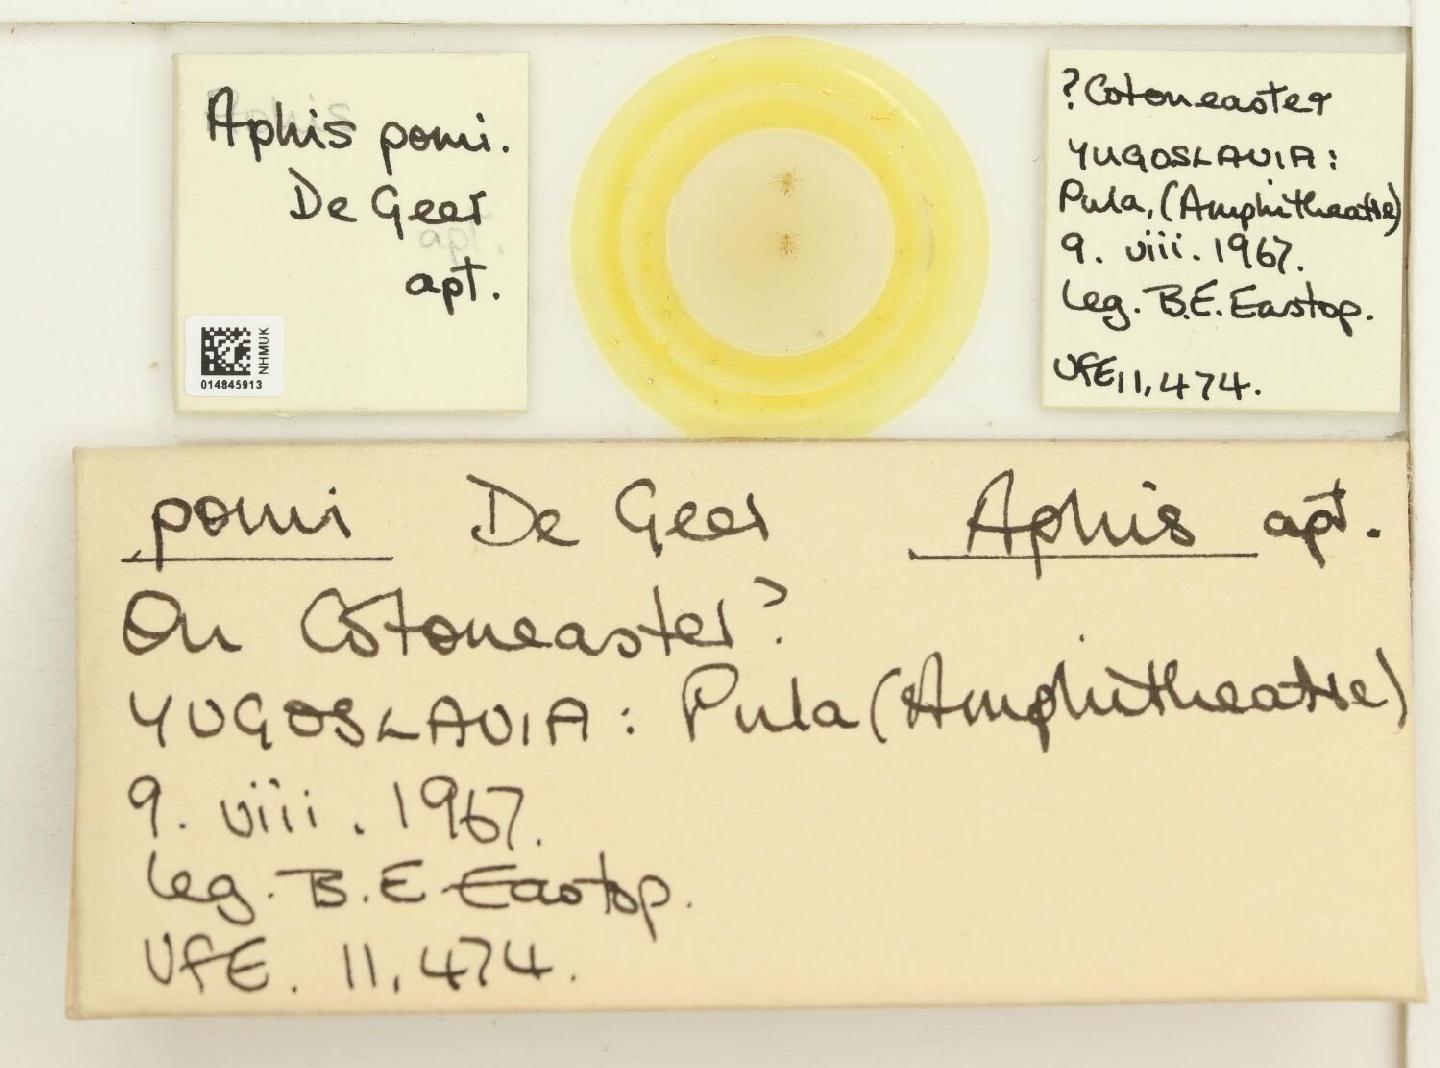 Aphis pomi.
De Geer
apt.
NHMUK
014845913
?Cotoneaster
YUGOSLAVIA:
Pula, (Amphitheatre)
9. viii. 1967.
leg. B.E. Eastop.
VFE 11,474.
pomi De Geer Aphis apt.
On Cotoneaster?
YUGOSLAVIA: Pula (Amphitheatre)
9. viii. 1967.
leg. B.E Eastop.
VFE. 11,474.